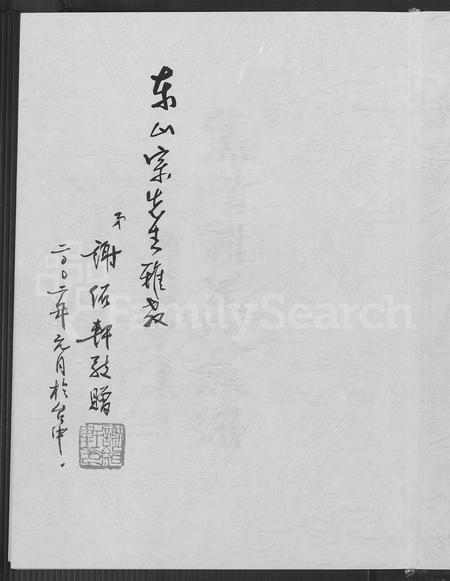 东山宗先生雅教
弟
谢绍轩敬贈
二〇〇二年元月於台中.
FamilySearch